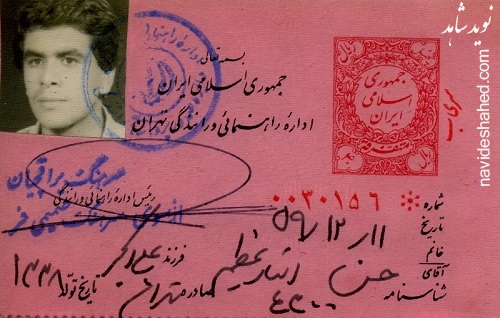 نوید شاهد
navideshahed.com
بسمه تعالی
جمهوری اسلامی ایران
اداره راهنمائی و رانندگی تهران
ریال
جمهوری
اسلامی
ایران
متفرقه
سرهنگ
رئیس اداره راهنمائی و رانندگی
شماره 0030156
تاریخ ۵۹/۱۲/۱۱
خانم
آقای حسن فرزند علی اکبر
شناسنامه ۴۳۰۰ صادره تهران تاریخ تولد ۱۳۳۸